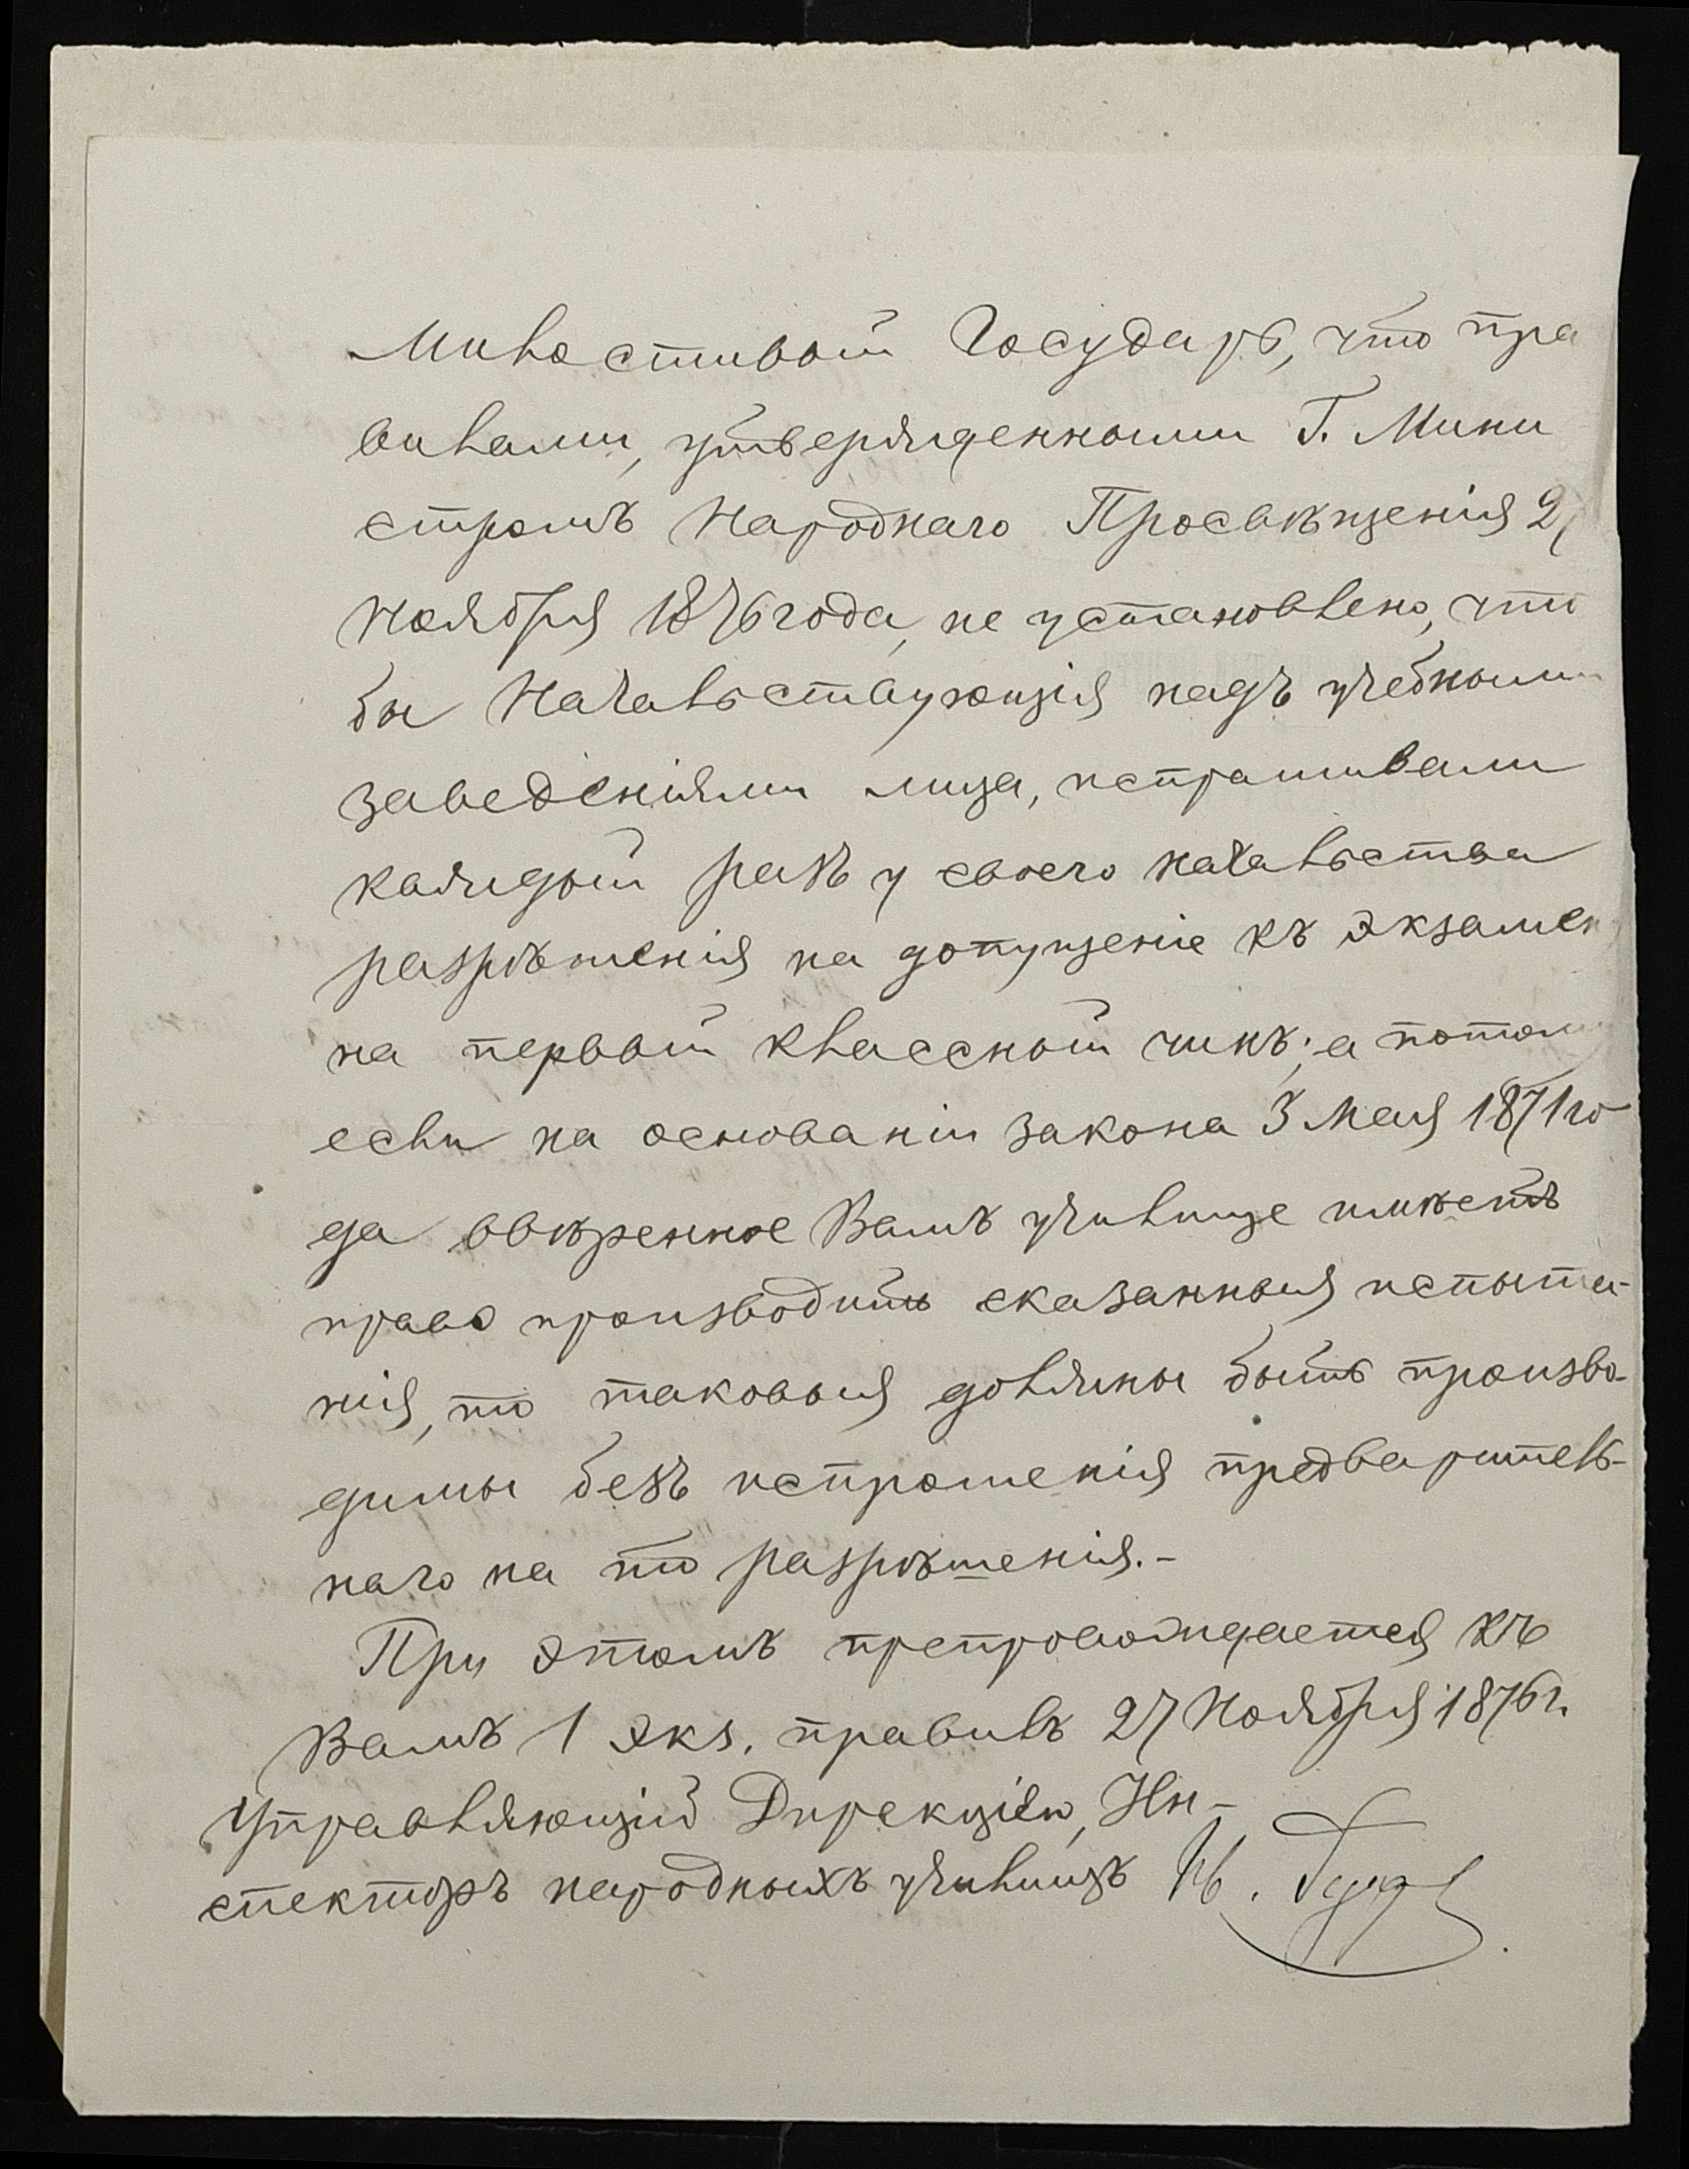 Милостивый Государь, что пра
вилами, утвержденными Г. Мини
стромъ Народнаго Просвѣщенія 27
Ноября 1876 года, не установлено, что
бы Начальствующія надъ учебными
заведеніями лица, испрашивали
каждый разъ у своего начальства
разрѣшенія на допущеніе къ экзамену
на первый классный чинъ; а потому
если на основаніи закона 3 Мая 1871 го
да ввѣренное Вамъ училище имѣетъ
право производить сказанныя испыта-
нія, то таковыя должны быть произво-
димы безъ испрошенія предваритель-
наго на то разрѣшенія.-
При этомъ препровождается къ
Вамъ 1 экз. правилъ 27 Ноября 1876 г.
Управляющій Дирекціею, Ин-
спекторъ народныхъ училищъ